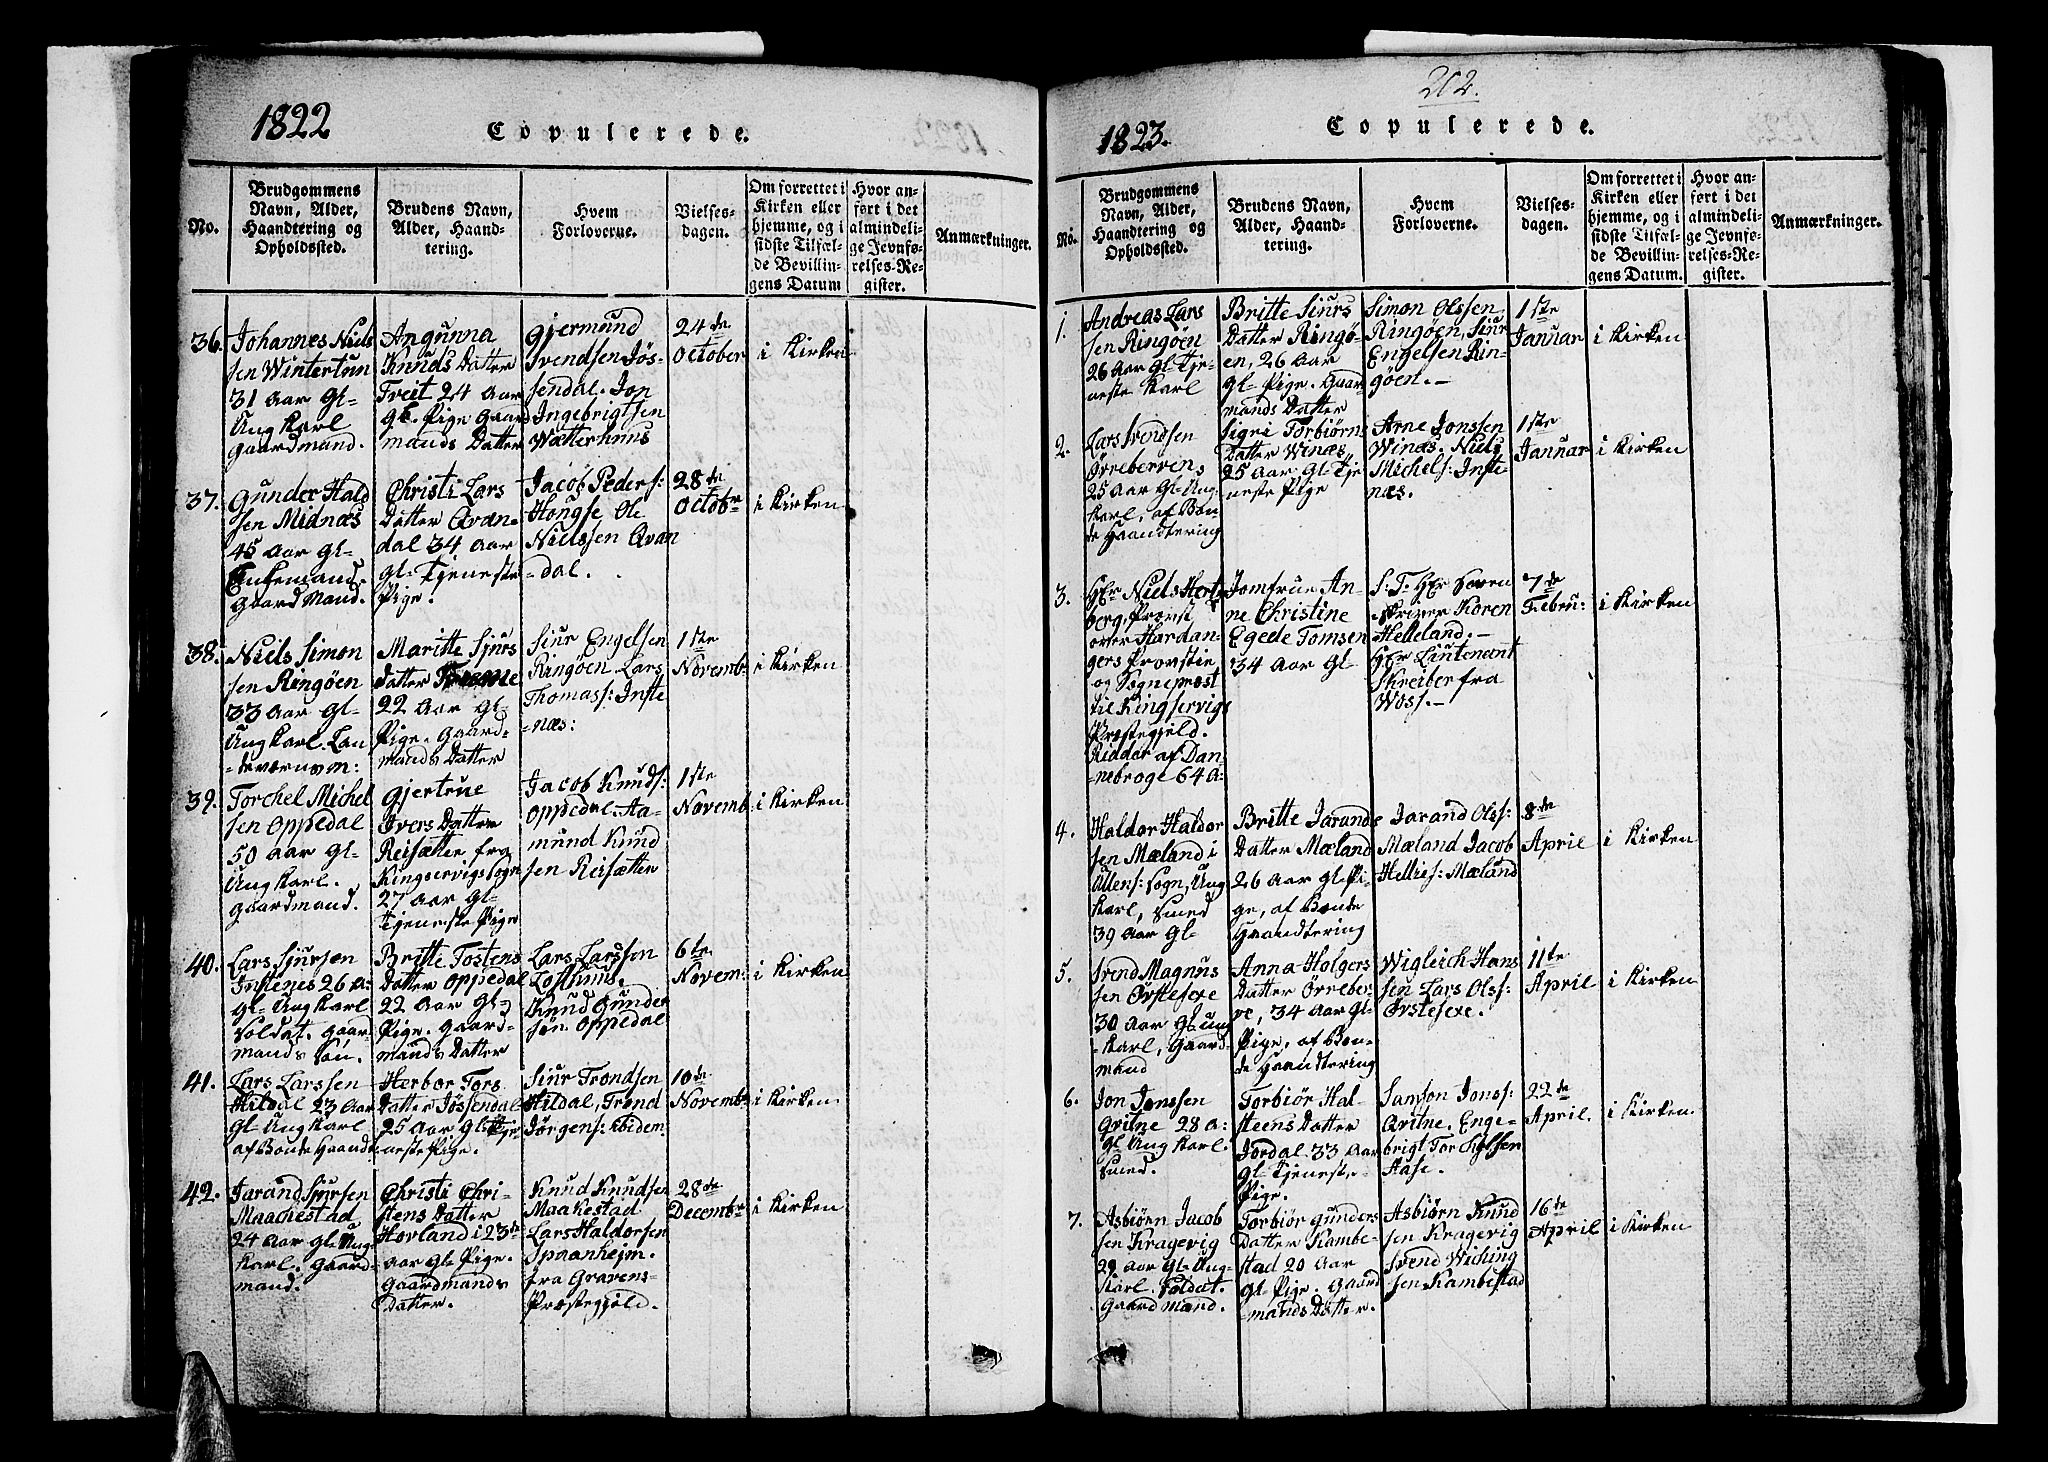 1822
Copulerede.
No.
Brudgommens
Navn, Alder,
Haandtering og
Opholdssted.
Brudens Navn,
Alder, Haand-
tering.
Hvem
Forloverne.
Vielses-
dagen.
Om forrettet i
Kirken eller
hjemme, og i
sidste Tilfæl-
de Bevillin-
gens Datum
Hvor an-
ført i det
almindeli-
ge Jevnfø-
relses-Re-
gister.
Anmærkninger.
36.
Johannes Niels
sen Wintertun
31 aar Gl-
Ung Karl
gaardmand.
Angunna
Knuds Datter
Freit 24 aar
gl. Pige Gaard
mands Datter
Gjermund
Svendsen Jøs-
sendal. Jon
Ingebrigtsen
Wætterhuus
24de
October
i Kirken
37.
Gunder Hald
sen Midnæs
45 aar Gl-
Enkemand.
gaard Mand.
Christi Lars
Datter Qvan-
dal 34 aar
gl- Tjeneste
Pige.
Jacob Peders:
Hougse Ole
Nielssen Qvan
-dal.
28de
Octobr
i Kirken
38.
Niels Simon
sen Ringøen
33 aar Gl-
Ung Karl. Lan
-deværnsm:
Maritte Sjurs
Datter
22 aar Gl-
Pige. Gaard-
mands Datter
Siur Engelsen
Ringøen. Lars
Thomass: Inste
-næs:
1ste
Novemb:
i Kirken
39.
Torchel Michel
sen Oppedal
50 aar Gl-
Ung Karl.
gaardmand.
Gjertrue
Ivers Datter
Reisætter fra
Kingservigs Sogn
27 aar Gl-
Tjeneste Pige
Jacob Knuds:
Oppedal Aa-
mund Knud
sen Reisætter
1ste
Novemb:
i Kirken
40.
Lars Sjursen
Instenes 26 a:
gl- Ung Karl
Soldat. gaar
mands Søn.
Britte Tostens
Datter Oppedal
22 aar Gl-
Pige. gaard-
mands Datter
Lars Larssen
Lofthuus.
Knud Gunder
søn. Oppedal
6te
Novem:
i Kirken
41.
Lars Larssen
Hildal 23 Aar
Gl- Ung Karl
af Bonde Haandt
Herbor Tors
Datter Jøssendal
25 aar Gl- Tje
neste Pige.
Siur Trondsen
Hildal, Trond
Jørgens: ibidem
10de
Novembr
i Kirken
42.
Jarand Sjursen
Maachestad
24 aar Gl- Ung
Karl. Gaard-
mand.
Christi Chri-
stens Datter
Horland i 23de
aar Gl- Pige.
Gaardmands
Datter.
Knud Knudsen
Maakestad
Lars Haldorsen
Spaanheim.
fra Gravens-
Præstegjæld.
28de
Decembr
i Kirken
202.
1823.
Copulerede.
No.
Brudgommens
Navn, Alder,
Haandtering og
Opholdssted.
Brudens Navn,
Alder, Haand-
tering.
Hvem
Forloverne.
Vielses-
dagen.
Om forrettet i
Kirken eller
hjemme, og i
sidste Tilfæl-
de Bevillin-
gens Datum.
Hvor an-
ført i det
almindeli-
ge Jevnfø-
relses-Re-
gister.
Anmærkninger.
1.
Andreas Lars
sen Ringøen
26 Aar Gl- Tje-
neste Karl
Britte Siurs
Datter Ringø-
en, 26 Aar
gl- Pige. Gaar
mands Datter
Simon Olssen
Ringøen, Siur
Engelsen Rin-
gøen.-
1ste
Januar
i Kirken
2.
Lars Svendsen
Ørrebervens
25 aar Gl- Ung
Karl, af Bon
de Haandtering
Sigri Torbiørns
Datter Winæs
25 aar Gl- Tje
neste Pige
Arne Jonssen
Winæs. Niels
Michels: Inste
næs.
1ste
Januar
i Kirken
3.
Hr Niels Hertz
berg, Provst
over Hardan-
gers Provstie
og Sognepræst
til Kingservigs
Præstegjeld.
Ridder af Dan-
-nebroge 64 a:
Jomfrue An-
ne Christine
Egede Tomsen
34 Aar Gl-
S: T: Hr Soren
skriver Koren
Helleland.-
Hr Lieutenant
Skreiber fra
Woss.-
7de
Febru:
i Kirken
4.
Haldor Haldor
sen Mæland i
Ullens: Sogn, Ung
Karl, Smed
39 aar Gl-
Britte Jarands
Datter Mæland
26 aar Gl- Pi-
ge, af Bonde
Haandtering
Jarand Olss:
Mæland Jacob
Hellies: Mæland
8de
April
i Kirken
5.
Svend Magnus
sen Ørstesexe
30 aar Gl- ung
-Karl, Gaard-
mand
Anna Holgers
Datter Ørreber
ve, 34 aar Gl-
Pige, af Bon-
de Haandtering
Wigleich Hans
sen Lars Olss:
Ørstesexe.
11te
April
i Kirken
6.
Jon Jonssen
Qvitne 28 a:
gl- Ung Karl.
Smed.
Torbiør Hal-
steens Datter
Jordal 33 aar
Gl- Tjeneste-
Pige.
Samson Jonss:
Qvitne. Enge-
brigt Torchelsen
Aase.
22de
April.
i Kirken.
7.
Asbiørn Jacob
sen Kragevig
29 aar Gl- Ung-
Karl. Soldat.
Gaard mand.
Torbiør Gunders
Datter Kambe-
stad 20 aar
Gl- Pige. Gaard
-mands Datter.
Asbiørn Knud
sen Kragevig
Svend Wiching
sen Kambestad
16de
April
i Kirken